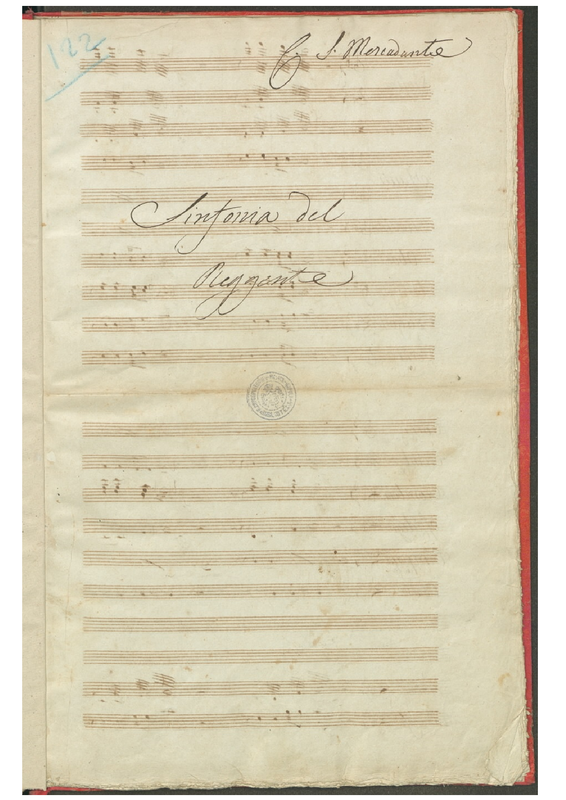 122
S. Mercadante
Sinfonia del
Reggente